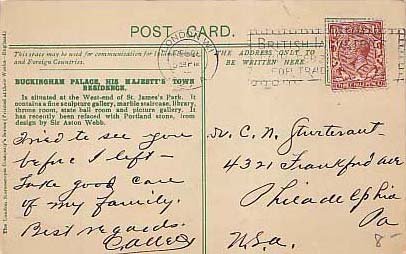 POST CARD.
This space may be used for communication for
and Foreign Countries.
THE ADDRESS ONLY TO
BE WRITTEN HERE
LONDON, W.1
BRITISH
FOR TRADE
BUCKINGHAM PALACE, HIS MAJESTY'S TOWN
RESIDENCE.
Is situated at the West-end of St. James's Park. It
contains a fine sculpture gallery, marble staircase, library,
throne room, state ball room and picture gallery. It
has recently been refaced with Portland stone, from
design by Sir Aston Webb.
Tried to see you
before I left —
Take good care
of my family.
Best regards.
C. N. Sturtevant.
4321 Frankford ave
Philadelphia
Pa
U.S.a.
8-